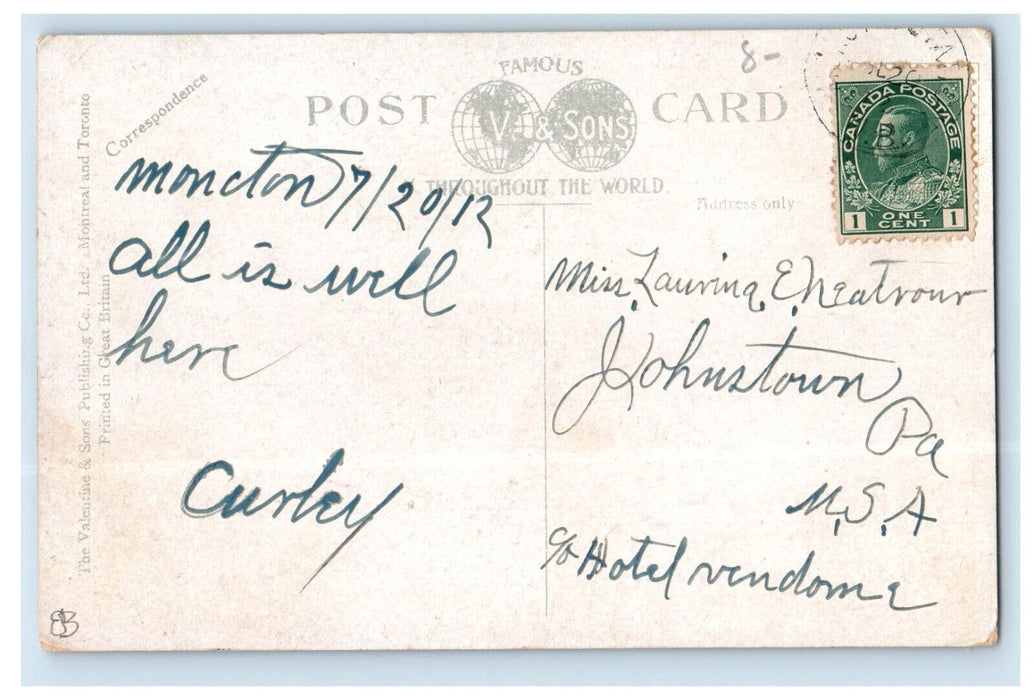 8-
FAMOUS
POST CARD
V. & SONS
THROUGHOUT THE WORLD.
Correspondence
Address only
The Valentine & Sons Publishing Co., Ltd. Montreal and Toronto
Printed in Great Britain
CANADA POSTAGE
1 ONE CENT 1
Moncton 7/20/12
all is well
here
Curley
Miss. Laurina. E. Neatrour
Johnstown
Pa
U.S.A
c/o Hotel vendome